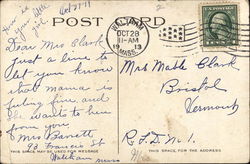 Oct 27 11
POST CARD
WALTHAM
OCT 28
11-AM
1913
MASS.
Dear Mrs Clark
Just a line to
let you know
that mama is
feeling fine and
she wants to hear
from you
Mrs Barrett
93 Francis St
Waltham Mass
Mrs Mable Clark
Bristol
Vermont
R.F.D. No 1.
THIS SPACE MAY BE USED FOR MESSAGE
THIS SPACE FOR THE ADDRESS